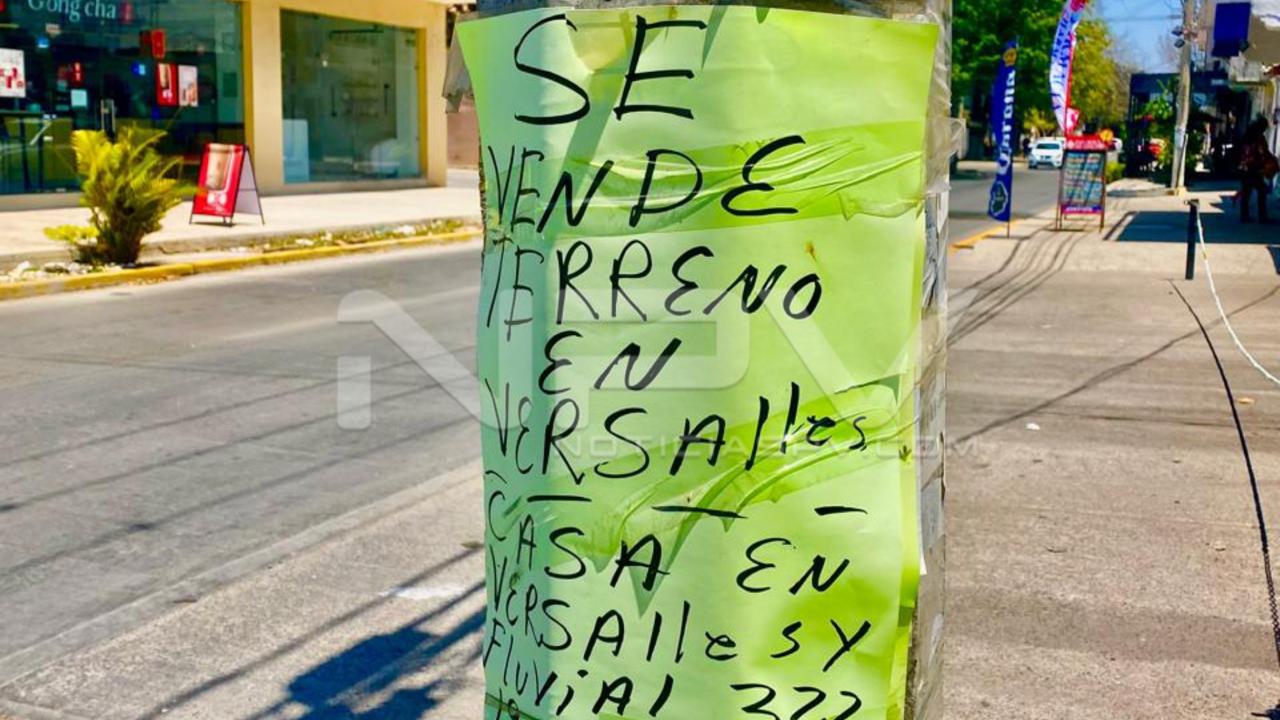 Gong cha
SE
VENDE
TERRENO
EN
VERSAlles
CASA EN
VERSAlles Y
FluviAl 322
NPV
NOTICIASPV.COM